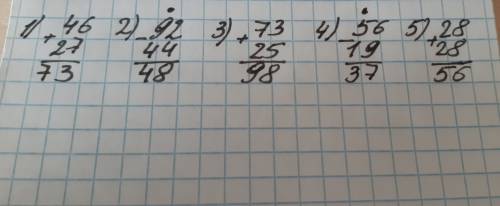 1) 46 2) 92 3) 73 4) 56 5) 28
+ 27 - 44 + 25 - 19 + 28
73 48 98 37 56